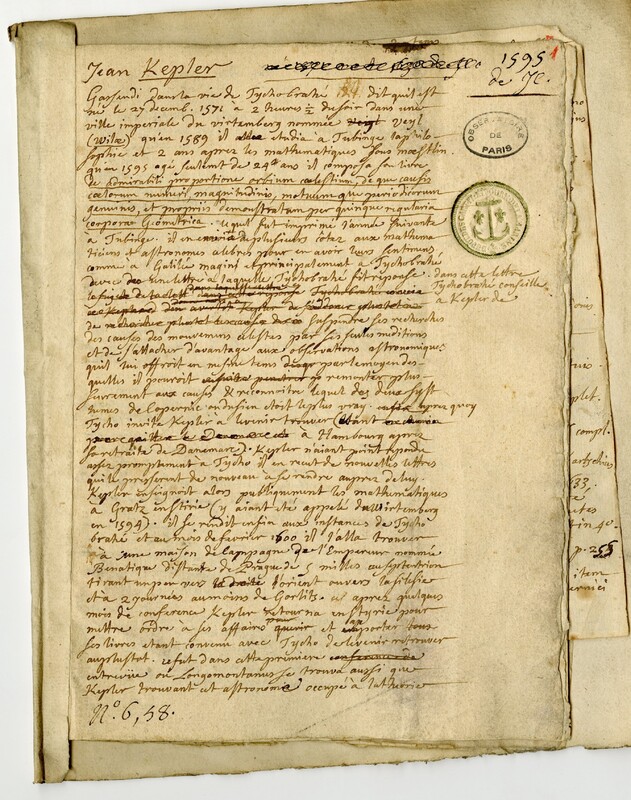 Jean Kepler
1595
de J.C.
OBSERVATOIRE
DE
PARIS
Gassendi dans la vie de Tychobrahé dit quil est
né le 27 decemb. 1571 à 2 heures ½ de soir dans une
ville imperiale du virtemberg nommée veyl
(Wilæ) qu'en 1589 il étudia à Tubinge la philo-
sophie et 2 ans aprez les mathematiques sous mæstlin
qu'en 1595 agé seulemt de 24 ans il composa son livre
de admirabili proportione orbium cœlestium, de que causis
cœlorum numeri, magnitudinis, motuum que periodicorum
genuinis, et propriis demonstratum per quinque regularia
corpora Geometrica. lequel fut imprimé l'année suivante
a Tubinge. il en de plusieurs cotez aux mathema
ticiens et astronomes celebres pour en avoir leurs sentimens
comme a Galilée magini et principalement à Tychobrahé
avec une lettre a laquelle Tychobrahé fit réponse. dans cette lettre
Tychobrahé conseille
a Kepler de
suspendre ses recherches
des causes des mouvemens celestes par ses seules meditions
et de s'attacher d'avantage aux observations astronomiques
quil lui offroit en mesme tems par le moyen des-
quelles il pourroit remonter plus
seurement aux causes & reconnoitre lequel des deux syst
temes de Copernic ou du sien etoit le plus vray. aprez quoy
Tycho invite Kepler a le venir trouver
à Hambourg aprez
sa retraite de Danemarc). Kepler n'aiant point repondu
assez promptement à Tycho il en recut de nouvelles lettres
qui le pressent de nouveau à se rendre auprez de luy.
Kepler enseignoit alors publiquement les mathematiques
à Gratz en stirie (y aiant été appelé du Wirtemberg
en 1594). il se rendit enfin aux instances de Tycho
brahé et au mois de fevrier 1600 il l'alla trouver
à une maison de campagne de l'Empereur nommée
Benatique distante de Prague de 5 milles au septentrion
tirant un peu vers d'orient ou vers la silesie
et a 2 journées au moins de Gorlitz. aprez quelques
mois de conference Kepler retourna en styrie pour
mettre ordre à ses affaires et apporter tous
ses livres etant convenu avec Tycho de le venir retrouver
au plustot. ce fut dans cette premiere
entrevüe ou Longomontanus se trouva aussi que
Kepler trouvant cet astronome occupé à la theorie
N.° 6, 58.
compl.
33.
in 4°.
p. 255
item